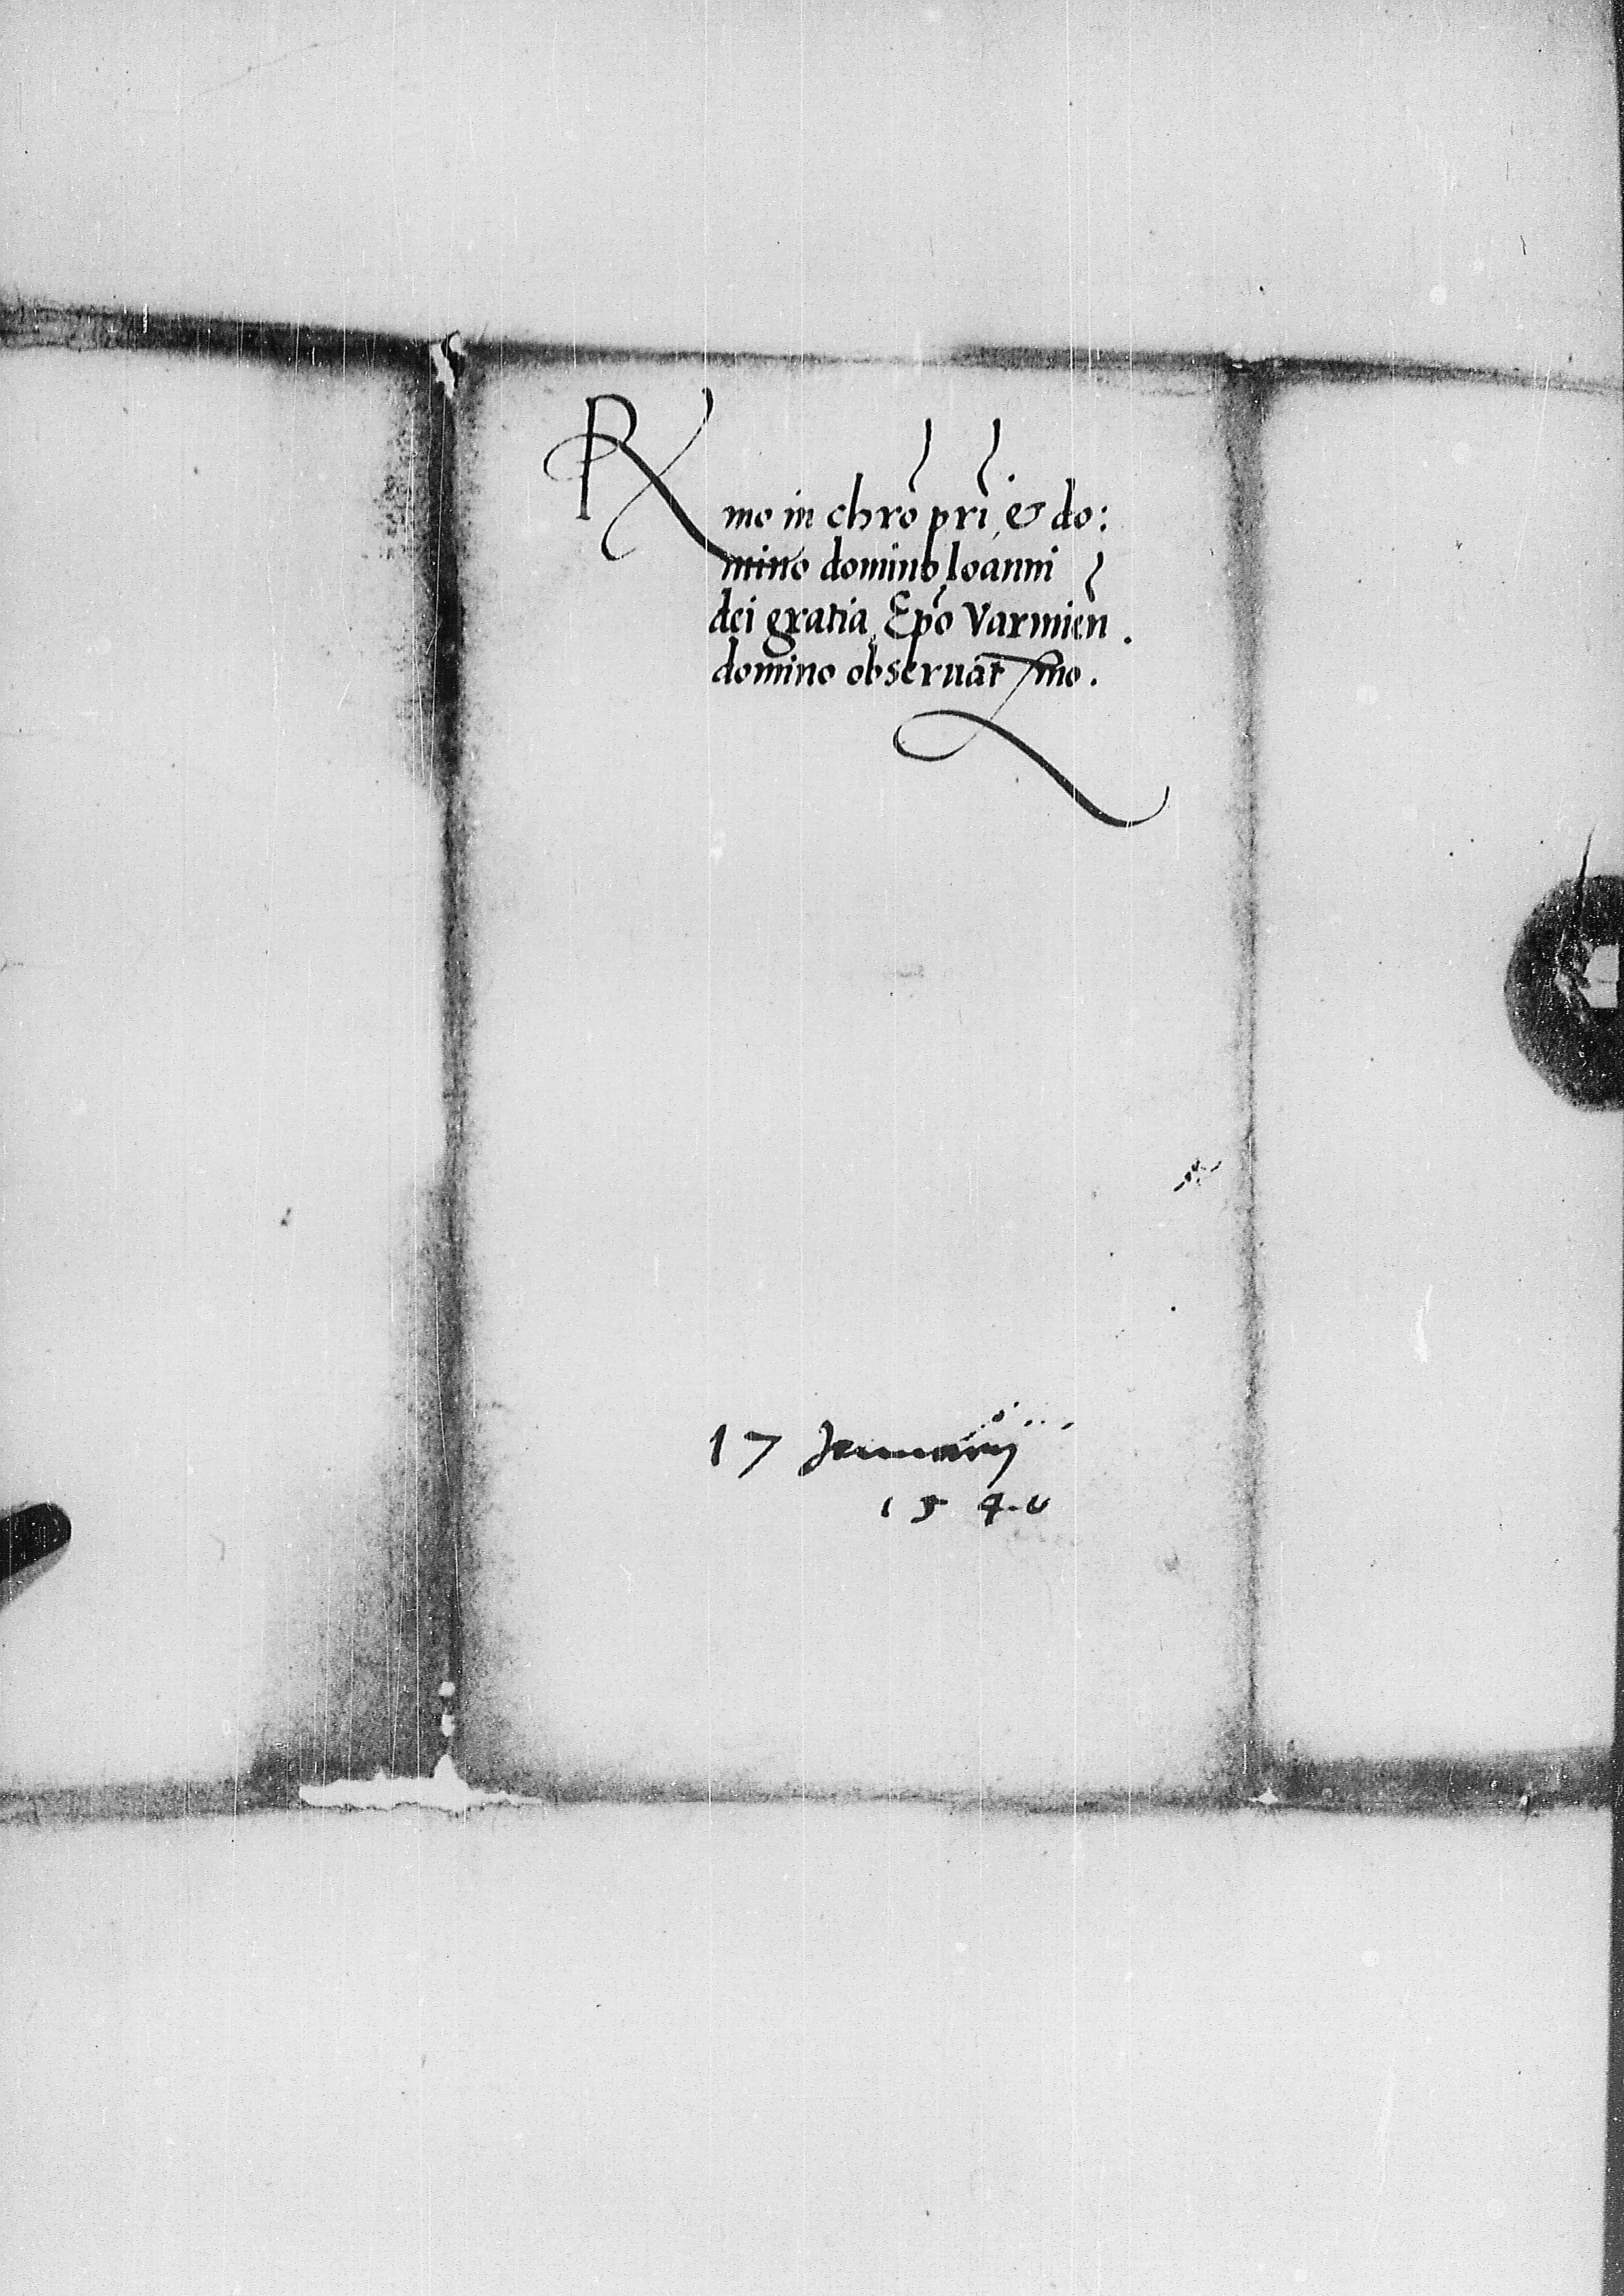 Rmo in chro pri & do:
mino domino Ioanni
dei gratia Epo Varmien.
domino obseruat mo.
17 Januarij
1540